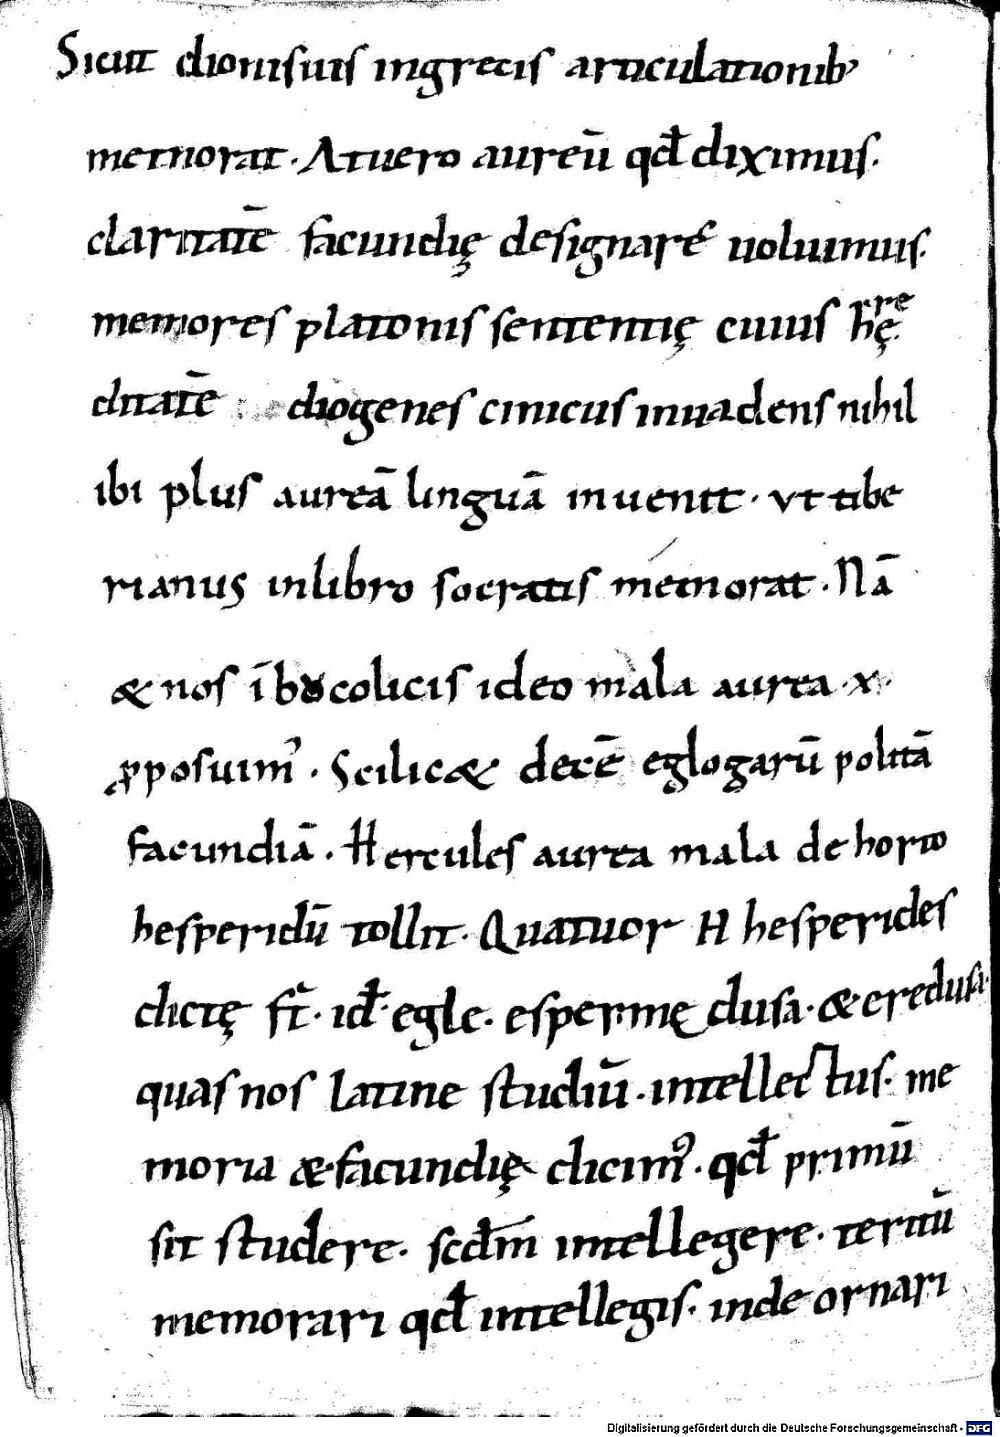 Sicut dionisius ingrecis articulationib'
memorat. At uero aureū qđ diximus.
claritatē facundię designare uoluimus.
memores platonis sententię cuius hęre
ditatē diogenes cinicus inuadens nihil
ibi plus aureā linguā inuenit. ut tibe
rianus inlibro socratis memorat. Nā
& nos ībucolicis ideo mala aurea .x.
ꝓposuim'. Scilic& decē eglogarū politā
facundiā. Hercules aurea mala de horto
hesperidū tollit. Quatuor H hesperides
dictę st̄. id̄. egle. esper. medusa. & eredusa.
quas nos latine studiū. intellectus. me
moria & facundię dicim'. qđ primū
sit studere. scdm̄ intellegere. tertiū
memorari qđ intellegis. inde ornari
Digitalisierung gefördert durch die Deutsche Forschungsgemeinschaft - DFG